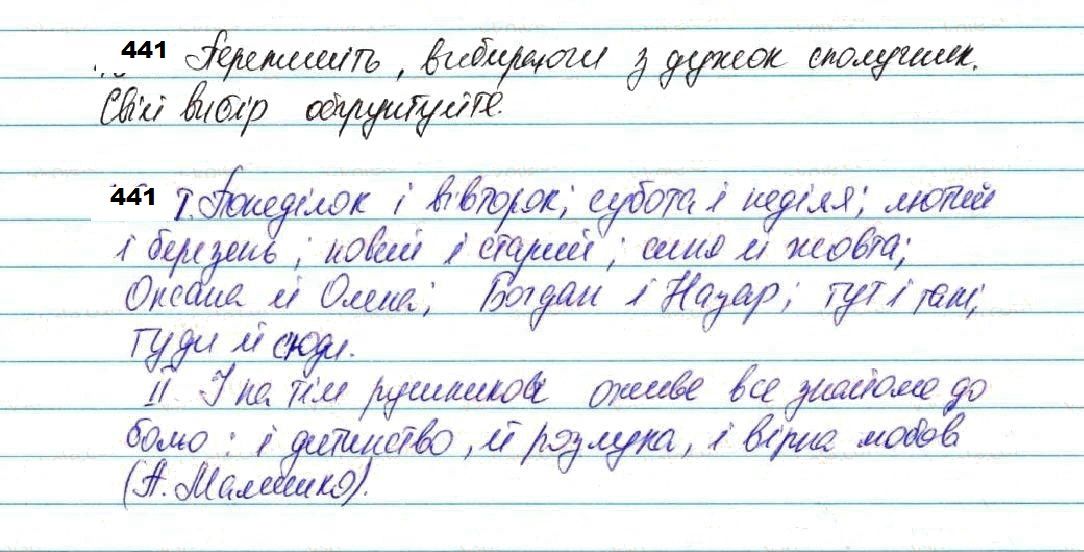 441 Перепишіть, вибираючи з дужок сполучник.
Свій вибір обґрунтуйте.
441 I. Понеділок і вівторок; субота і неділя; лютий
і березень; новий і старий; синя й жовта;
Оксана й Олена; Богдан і Назар; тут і там;
туди й сюди.
II. І на тім рушникові оживе все знайоме до
болю: і дитинство, й розлука, і вірна любов
(А. Малишко).